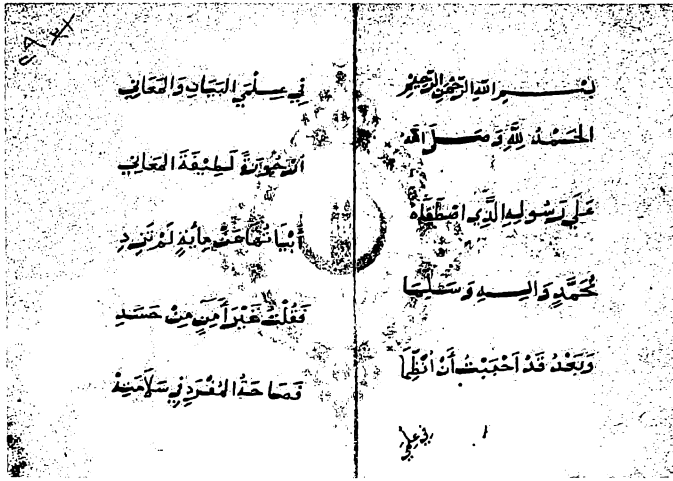 بِسْــمِ اللهِ الرَّحْمٰنِ الرَّحِيْمِ
الحَمْدُ لِلّٰهِ وَصَلَّى اللهُ
عَلَى رَسُولِهِ الَّذِي اصْطَفَاهُ
مُحَمَّدٍ وَالِــهِ وَسَلَّمَا
وَبَعْدُ قَدْ اَحْبَبْتُ أَنْ اَنْظِمَا
فِي عِلْمَيِ
فِي عِلْمَيِ البَيَانِ وَالمَعَانِي
اُرْجُوْزَةً لَطِيْفَةَ المَعَانِي
أَبْيَاتُهَا عَنْ مِائَةٍ لَمْ تَزِدِ
فَقُلْتُ غَيْرَ أَمِنٍ مِنْ حَسَدِ
فَصَاحَةُ المُفْرَدِ فِي سَلَامَتِهْ